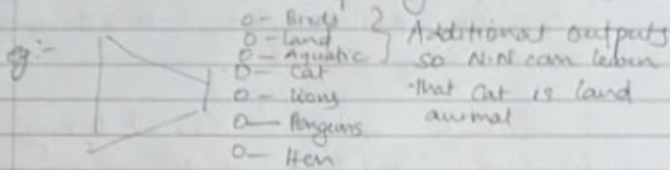 eg:-
O- Birds
O- Land
O- Aquatic
O- Cat
O- Lions
O- Penguins
O- Hen
Additional outputs
so N.N can learn
that Cat is land
animal